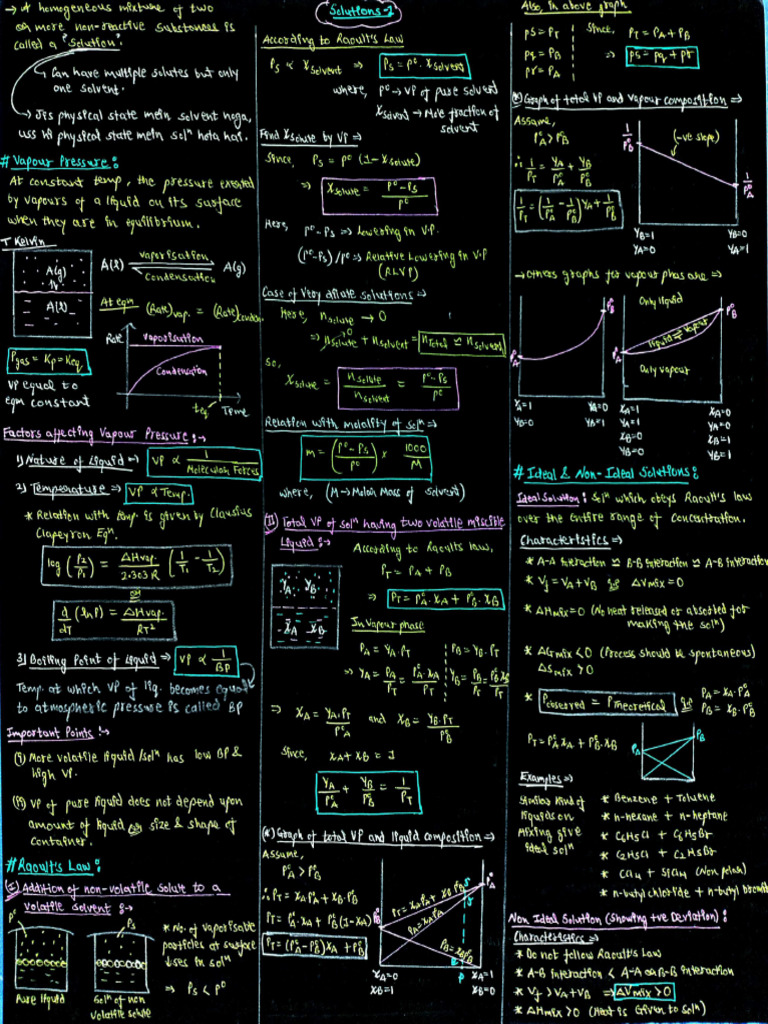 Solutions-1
→ A homogeneous mixture of two
or more non-reactive substances is
called a "Solution".
→ Can have multiple solutes but only
one solvent.
→ Jis physical state mein solvent hoga,
uss hi physical state mein solⁿ hota hai.
# Vapour Pressure :
At constant temp, the pressure exerted
by vapours of a liquid on its surface
when they are in equilibrium.
T Kelvin
A(g)
A(l)
A(l) vaporisation A(g)
condensation
At eqm (Rate)vap. = (Rate)conden.
Rate
vaporisation
Condensation
teq Time
Pgas = Kp = Keq
VP equal to
eqm constant
Factors affecting Vapour Pressure :→
1) Nature of Liquid ⇒ VP ∝ 1/Molecular Forces
2) Temperature ⇒ VP ∝ Temp.
* Relation with temp. is given by Clausius
Clapeyron Eqⁿ.
log (P2/P1) = ΔHvap./2.303 R (1/T1 − 1/T2)
or
d/dT (ln P) = ΔHvap./RT²
3) Boiling Point of Liquid ⇒ VP ∝ 1/BP
Temp. at which VP of liq. becomes equal
to atmospheric pressure is called BP
Important Points :→
(i) More volatile liquid/solⁿ has low BP &
high VP.
(ii) VP of pure liquid does not depend upon
amount of liquid or size & shape of
container.
# Raoult's Law :
(I) Addition of non-volatile solute to a
volatile solvent :→
P°
Ps
Pure liquid
Solⁿ of non
volatile solute
* No. of vaporisable
particles at surface
⇒ Ps < P°
According to Raoult's Law
Ps ∝ Xsolvent ⇒ Ps = P°. Xsolvent
where, P° → VP of pure solvent
Xsolvent → Mole fraction of
solvent
Find Xsolute by VP ⇒
Since, Ps = P° (1 − Xsolute)
⇒ Xsolute = P° − Ps / P°
Here, P° − Ps ⇒ Lowering in V.P.
(P° − Ps)/P° ⇒ Relative Lowering in V.P
(RLVP)
Case of Very dilute solutions ⇒
Here, nsolute → 0
⇒ nsolute + nsolvent = ntotal ≃ nsolvent
So,
Xsolute = nsolute/nsolvent = P° − Ps / P°
Relation with molality of solⁿ
m = (P° − Ps / P°) × 1000/M
where, (M → Molar Mass of solvent)
(II) Total VP of solⁿ having two volatile miscible
Liquid :→
According to Raoult's law,
PT = PA + PB
⇒ PT = P°A . XA + P°B . XB
YA YB
XA XB
In vapour phase
PA = YA.PT PB = YB.PT
⇒ YA = PA/PT = P°A.XA/PT YB = PB/PT = P°B.XB/PT
⇒ XA = YA.PT/P°A and XB = YB.PT/P°B
Since, XA + XB = 1
YA/P°A + YB/P°B = 1/PT
(*) Graph of total VP and liquid composition ⇒
Assume,
P°A > P°B
∴ PT = XA P°A + XB.P°B
PT = P°A.XA + P°B (1−XA)
PT = (P°A − P°B)XA + P°B
P°B
P°A
PT = XA P°A + XB P°B
PA = XA P°A
PB = XB P°B
S
r
q
P
XA=0 XA=1
XB=1 XB=0
Also, in above graph
PS = PT
Pq = PB
Pr = PA
Since, PT = PA + PB
⇒ PS = Pq + Pr
(*) Graph of total VP and vapour composition ⇒
Assume,
P°A > P°B
∴ 1/PT = YA/P°A + YB/P°B
1/PT = (1/P°A − 1/P°B) YA + 1/P°B
1/P°B
(−ve slope)
1/P°A
YB=1 YB=0
YA=0 YA=1
→ Others graphs for vapour phas are ⇒
P°A
P°B
XA=1 YA=0
YB=0 YA=1
P°A
Only liquid
liquid ⇌ vapour
Only vapour
P°B
XA=1 XA=0
YA=1 YA=0
XB=0 XB=1
YB=0 YB=1
# Ideal & Non-Ideal Solutions :
Ideal Solution : Solⁿ which obeys Raoult's law
over the entire range of concentration.
Characteristics ⇒
* A-A interaction ≃ B-B interaction ≃ A-B interaction
* Vf = VA + VB ΔVmix = 0
* ΔHmix = 0 (No heat released or absorbed for
making the solⁿ)
* ΔGmix < 0 (Process should be spontaneous)
ΔSmix > 0
* Pobserved = Ptheoretical PA = XA.P°A
PB = XB.P°B
PT = P°A XA + P°B.XB
PA
PB
Examples ⇒
Similar kind of
liquids on
Mixing give
ideal solⁿ
* Benzene + Toluene
* n-hexane + n-heptane
* C6H5Cl + C6H5Br
* C2H5Cl + C2H5Br
* CCl4 + SiCl4 (Non polar)
* n-butyl chloride + n-butyl bromide
Non Ideal Solution (Showing +ve Deviation) :
Characteristics ⇒
* Do not follow Raoult's Law
* A-B interaction < A-A or B-B interaction
* Vf > VA + VB ⇒ ΔVmix > 0
* ΔHmix > 0 (Heat is Given to Solⁿ)